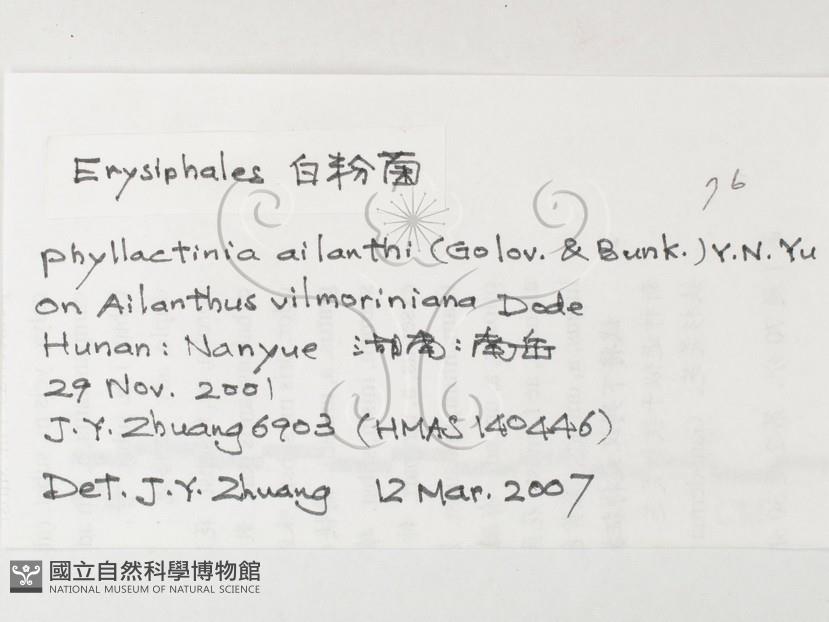 Erysiphales 白粉菌
76
phyllactinia ailanthi (Golov. & Bunk.) Y.N. Yu
on Ailanthus vilmoriniana Dode
Hunan: Nanyue 湖南:南岳
29 Nov. 2001
J.Y. Zhuang 6903 (HMAS 140446)
Det. J.Y. Zhuang 12 Mar. 2007
國立自然科學博物館
NATIONAL MUSEUM OF NATURAL SCIENCE